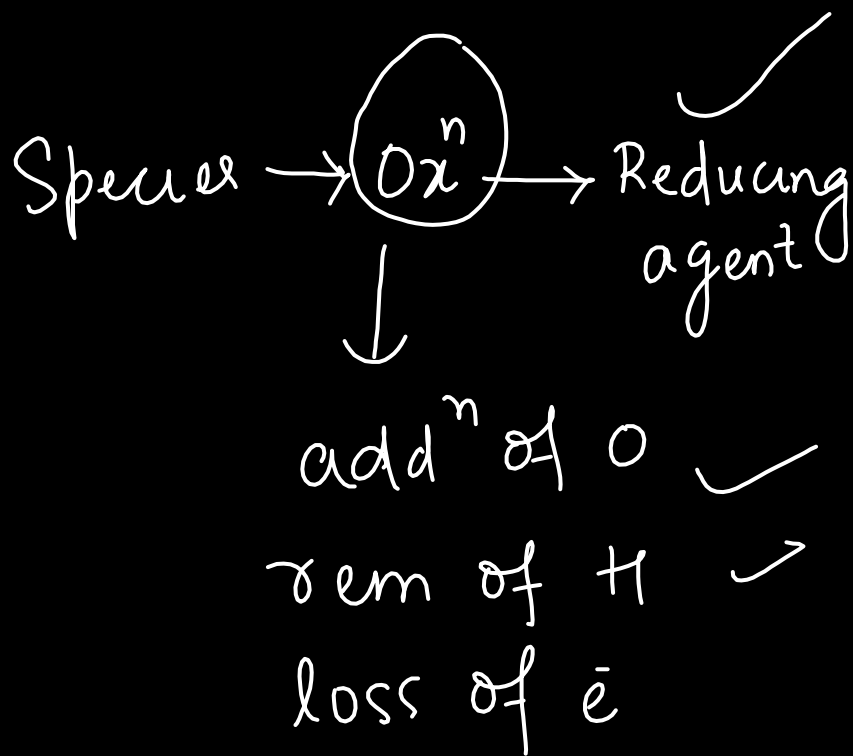 Species → Oxⁿ → Reducing
agent
addⁿ of O
rem of H
loss of ē